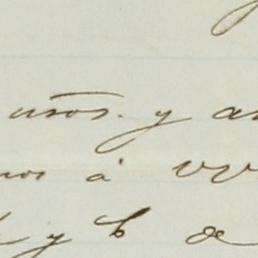 uños. y
nos á VV
y b de